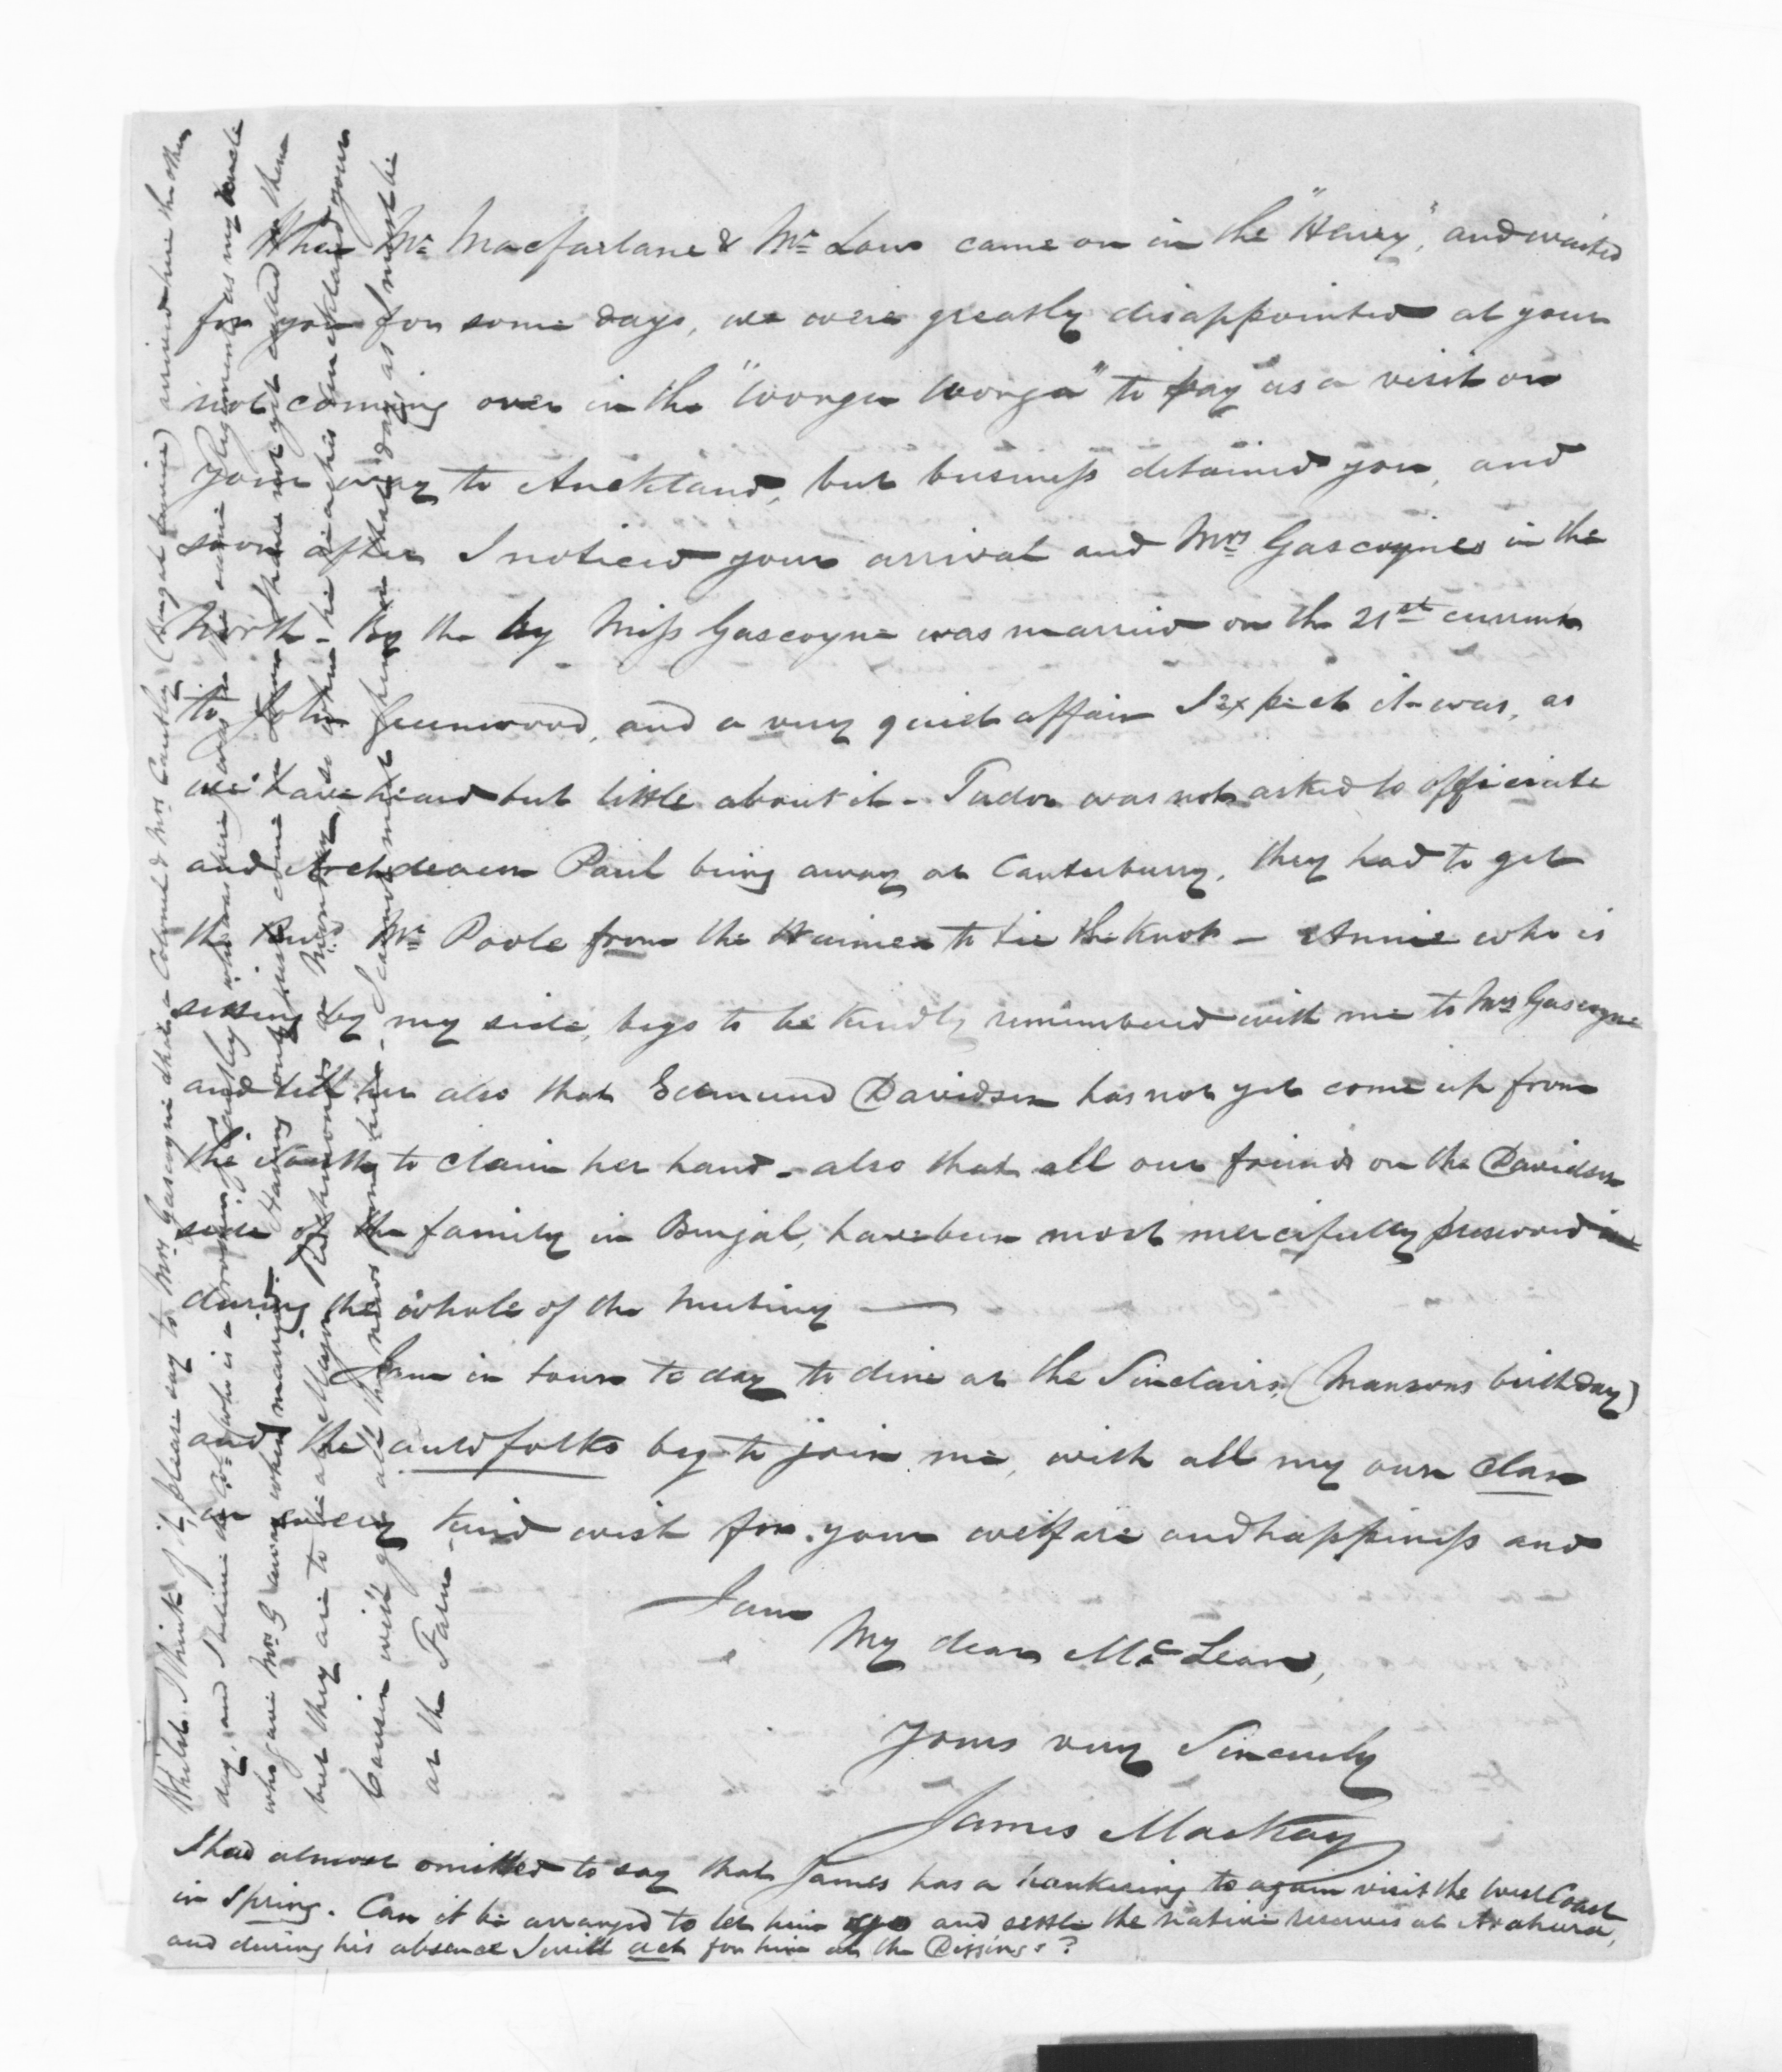 When Mr Macfarlane & Mr Low came on in the "Henry", and waited
for you for some days, we were greatly disappointed at your
not coming over in the "Wonga Wonga" to pay us a visit on
your way to Auckland, but business detained you, and
soon after I noticed your arrival and Mrs Gascoynes in the
North - By the by Miss Gascoyne was married on the 21st current
to John Greenwood, and a very quiet affair I expect it was, as
we have heard but little about it - Tudor was not asked to officiate
and Archdeacon Paul being away at Canterbury, they had to get
the Revd Mr Poole from the Waimea to tie the knot - Annie who is
sitting by my side, begs to be kindly remembered with me to Mrs Gascoyne
and tell her also that Edmund Davidson has not yet come up from
the South to claim her hand - also that all our friends on the Davidson
side of the family in Bengal, have been most mercifully preserved
during the whole of the Mutiny -
I am in town to day to dine at the Sinclairs, (Mansons birthday)
and the auld folks beg to join me, with all my own clan
in every kind wish for your welfare and happiness and
I am
My dear McLean,
Yours very Sincerely
James Mackay
I had almost omitted to say that James has a hankering to again visit the West Coast
in Spring. Can it be arranged to let him go and settle the native reserves at Arahura,
and during his absence I will act for him at the Diggings?
Whilst I think of it, please say to Mrs Gascoyne that a Colonel & Mrs Cautley (Bengal Service) arrived here the other
day, and I believe the Col. who is a Cautley who was many years in the same Regiment as my Uncle
who gave Mrs G away when married. Having only just come in from I have not yet called on them
but they are to be at Major Richmonds on Monday, so when he is at his in Auckland your
Cousin will get all the news from him - I cannot spend that day as I must be
at the Farm -